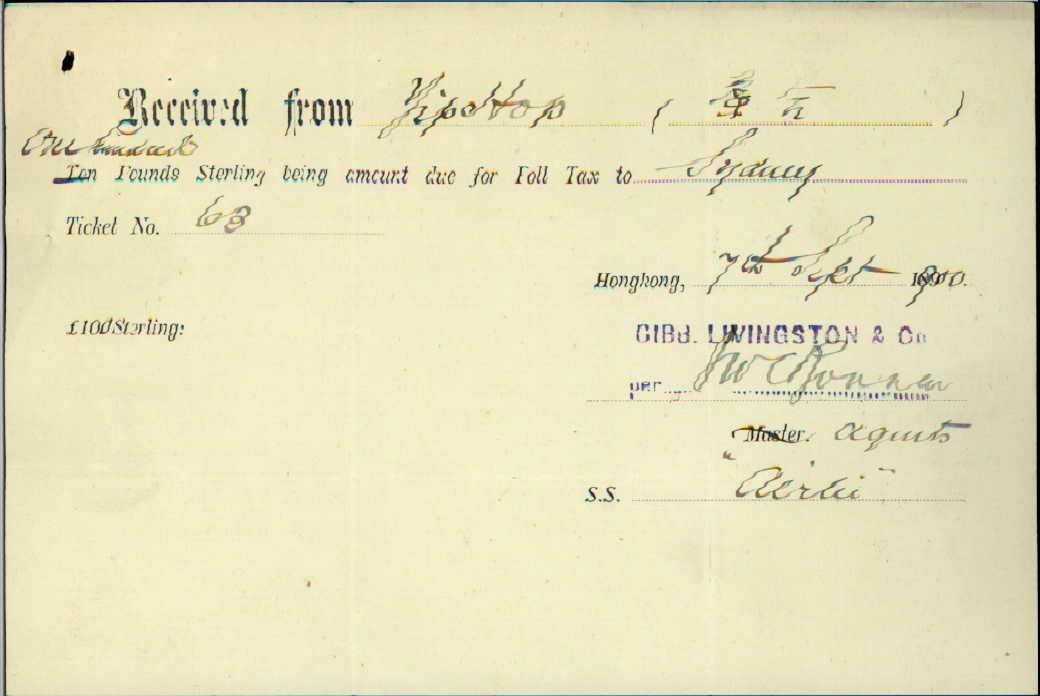 Received from Yip Hop ( )
One hundred
Ten Pounds Sterling being amount due for Poll Tax to Sydney
Ticket No. 63
Hongkong, 7th Sept 1900.
£100 Sterling:
GIBB, LIVINGSTON & Co
per
Master. Agents
S.S. "Airlie"